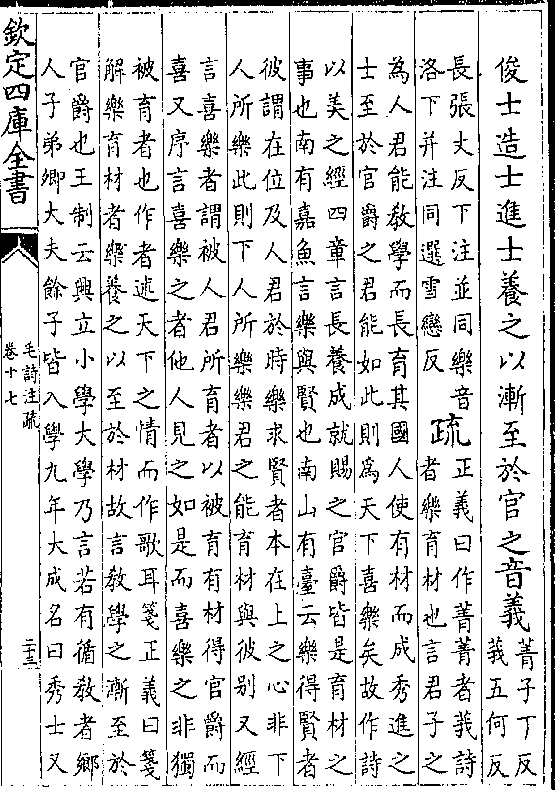 俊士造士進士養之以漸至於官之音義菁子丁反
莪五何反
長張丈反下注並同樂音
洛下并注同選雪戀反
疏正義曰作菁菁者莪詩
者樂育材也言君子之
為人君能教學而長育其國人使有材而成秀進之
士至於官爵之君能如此則為天下喜樂矣故作詩
以美之經四章言長養成就賜之官爵皆是育材之
事也南有嘉魚言樂與賢也南山有臺云樂得賢者
彼謂在位及人君於時樂求賢者本在上之心非下
人所樂此則下人所樂樂君之能育材與彼別又經
言喜樂者謂被人君所育者以被育有材得官爵而
喜又序言喜樂之者他人見之如是而喜樂之非獨
被育者也作者述天下之情而作歌耳箋正義曰箋
解樂育材者樂養之以至於材故言教學之漸至於
官爵也王制云興立小學大學乃言若有循教者鄉
人子弟卿大夫餘子皆入學九年大成名曰秀士又
欽定四庫全書
毛詩注疏
卷十七
二十三